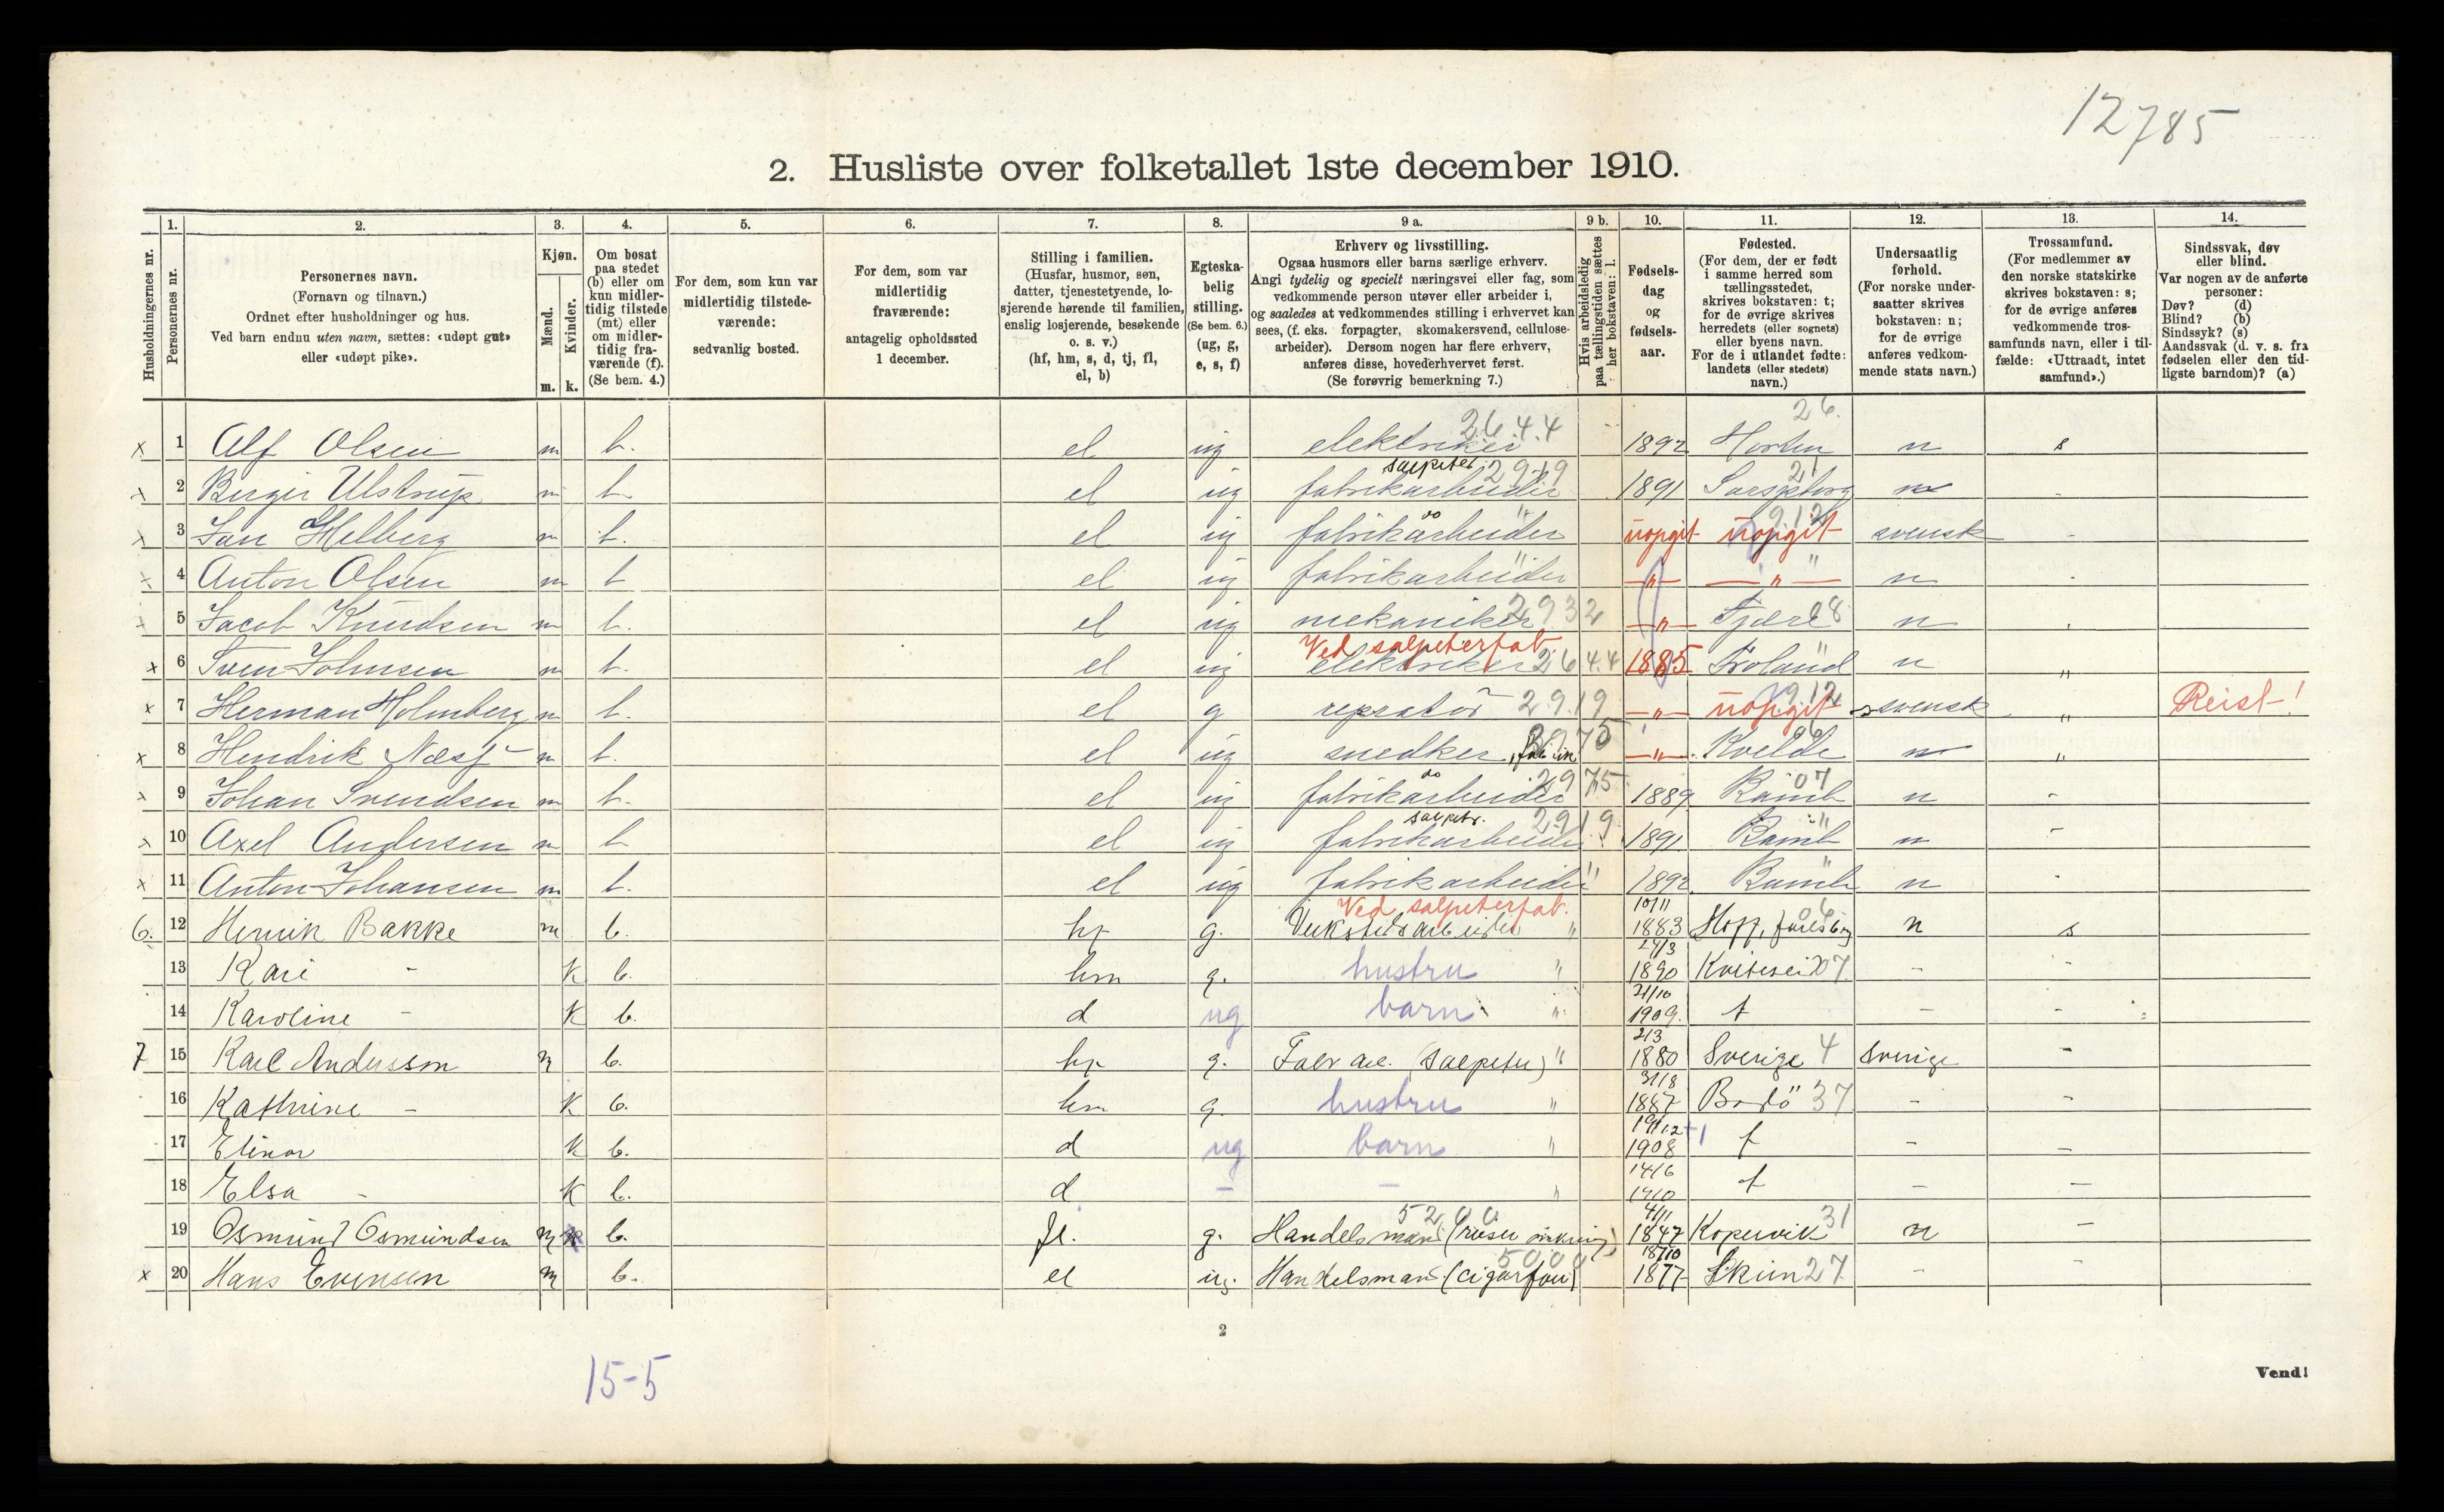 12785
2. Husliste over folketallet 1ste december 1910.
Husholdningernes nr.
1. Personernes nr.
2. Personernes navn. (Fornavn og tilnavn.) Ordnet efter husholdninger og hus. Ved barn endnu uten navn, sættes: «udøpt gut» eller «udøpt pike».
3. Kjøn. Mænd. m. Kvinder. k.
4. Om bosat paa stedet (b) eller om kun midlertidig tilstede (mt) eller om midlertidig fraværende (f). (Se bem. 4.)
5. For dem, som kun var midlertidig tilstedeværende: sedvanlig bosted.
6. For dem, som var midlertidig fraværende: antagelig opholdssted 1 december.
7. Stilling i familien. (Husfar, husmor, søn, datter, tjenestetyende, losjerende hørende til familien, enslig losjerende, besøkende o. s. v.) (hf, hm, s, d, tj, fl, el, b)
8. Egteskabelig stilling. (Se bem. 6.) (ug, g, e, s, f)
9 a. Erhverv og livsstilling. Ogsaa husmors eller barns særlige erhverv. Angi tydelig og specielt næringsvei eller fag, som vedkommende person utøver eller arbeider i, og saaledes at vedkommendes stilling i erhvervet kan sees, (f. eks. forpagter, skomakersvend, cellulosearbeider). Dersom nogen har flere erhverv, anføres disse, hovederhvervet først. (Se forøvrig bemerkning 7.)
9 b. Hvis arbeidsledig paa tællingstiden sættes her bokstaven: l.
10. Fødselsdag og fødselsaar.
11. Fødested. (For dem, der er født i samme herred som tællingsstedet, skrives bokstaven: t; for de øvrige skrives herredets (eller sognets) eller byens navn. For de i utlandet fødte: landets (eller stedets) navn.)
12. Undersaatlig forhold. (For norske undersaatter skrives bokstaven: n; for de øvrige anføres vedkommende stats navn.)
13. Trossamfund. (For medlemmer av den norske statskirke skrives bokstaven: s; for de øvrige anføres vedkommende trossamfunds navn, eller i tilfælde: «Uttraadt, intet samfund».)
14. Sindssvak, døv eller blind. Var nogen av de anførte personer: Døv? (d) Blind? (b) Sindssyk? (s) Aandssvak (d. v. s. fra fødselen eller den tidligste barndom)? (a)
x 1 Alf Olsen m b. el ug elektriker 26.4.4 1892 Horten 26. n s
x 2 Birger Ulstrup m b. el ug salpeter fabrikarbeider 2919 1891 Sarpsborg 21 n -
x 3 Jan Helberg m b. el ug do fabrikarbeider " uopgit uopgit 912 svensk -
x 4 Anton Olsen m b el ug fabrikarbeider " —"— —"— n
x 5 Jacob Knudsen m b. el ug mekaniker 2932 —"— Fjære 28 n
x 6 Sven Johnsen m b. el ug Ved salpeterfab. elektriker 264.4 1885 Froland " n "
x 7 Herman Holmberg m b. el g repratör 2919 —"— uopgit 912 svensk " Reist!
x 8 Hendrik Næss m b. el ug snedker, 75 —"— Kvelde n "
x 9 Johan Svendsen m b. el ug do fabrikarbeider 2975 1889 Bamb 07 n -
x 10 Axel Andersen m b el ug salpetr. fabrikarbeider 2919 1891 Bamb " n -
x 11 Anton Johansen m b. el ug fabrikarbeider " 1892 Bamb " n -
6. 12 Henrik Bakke m b. hf g. Ved salpeterfab. Verkstedsarbeider " 10/11 1883 Hof, Jarlsberg 06 n s
13 Kari - k b. hm g. hustru " 24/3 1890 Kviteseid 07 - -
14 Karoline - k b. d ug barn " 21/10 1909. t - -
7 15 Karl Andersson m b. hf g. Fabr arb. (salpeter) " 2/3 1880 Sverige 4 Sverige -
16 Kathrine - k b. hm g. hustru " 31/8 1887 Bodö 37 - -
17 Elinor k b. d ug barn " 19/12 1908 +1 t - -
18 Elsa - k b. d - - " 14/6 1910 t - -
19 Osmund Osmundsen m b. fl. g. Handelsmand 5200 4/11 1847 Kopervik 31 n -
x 20 Hans Evensen m b. el ug. Handelsmand 5000 18/10 1877 Skien 27 - -
2
15-5
Vend!